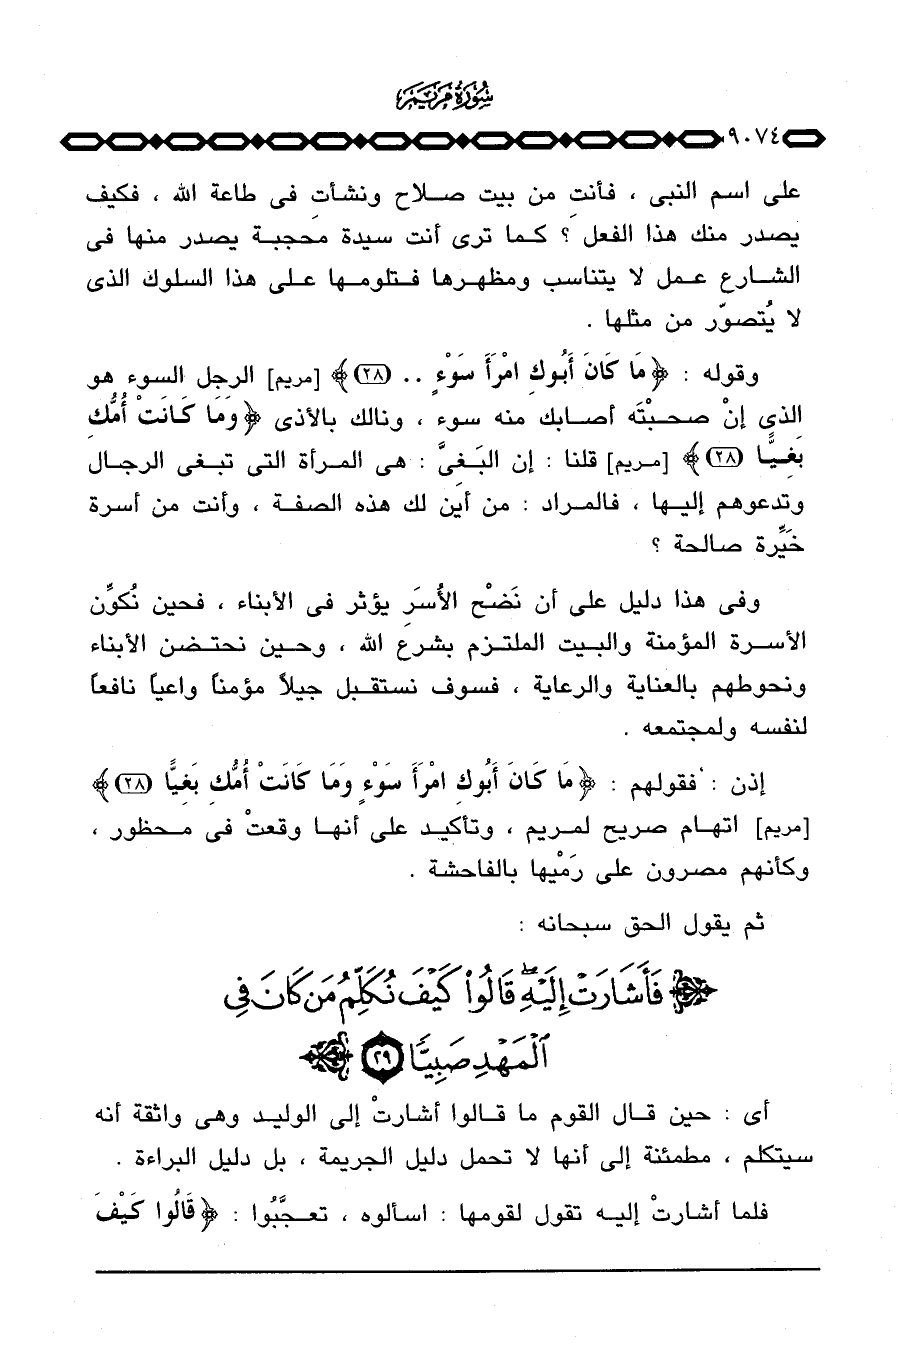 سورة مريم
٩٠٧٤
على اسم النبى ، فأنت من بيت صلاح ونشأت فى طاعة الله ، فكيف
يصدر منك هذا الفعل ؟ كما ترى أنت سيدة محجبة يصدر منها فى
الشارع عمل لا يتناسب ومظهرها فتلومها على هذا السلوك الذى
لا يُتصوّر من مثلها .
وقوله : ﴿ مَا كَانَ أَبُوكِ امْرَأَ سَوْءٍ .. (٢٨) ﴾ [مريم] الرجل السوء هو
الذى إنْ صحبْتَه أصابك منه سوء ، ونالك بالأذى ﴿ وَمَا كَانَتْ أُمُّكِ
بَغِيًّا (٢٨) ﴾ [مريم] قلنا : إن البَغىَّ : هى المرأة التى تبغى الرجال
وتدعوهم إليها ، فالمراد : من أين لك هذه الصفة ، وأنت من أسرة
خَيِّرة صالحة ؟
وفى هذا دليل على أن نَضْح الأُسَرِ يؤثر فى الأبناء ، فحين نُكوِّن
الأسرة المؤمنة والبيت الملتزم بشرع الله ، وحين نحتضن الأبناء
ونحوطهم بالعناية والرعاية ، فسوف نستقبل جيلاً مؤمناً واعياً نافعاً
لنفسه ولمجتمعه .
إذن : فقولهم : ﴿ مَا كَانَ أَبُوكِ امْرَأَ سَوْءٍ وَمَا كَانَتْ أُمُّكِ بَغِيًّا (٢٨) ﴾
[مريم] اتهام صريح لمريم ، وتأكيد على أنها وقعتْ فى محظور ،
وكأنهم مصرون على رَمْيها بالفاحشة .
ثم يقول الحق سبحانه :
﴿ فَأَشَارَتْ إِلَيْهِ ۖ قَالُوا۟ كَيْفَ نُكَلِّمُ مَن كَانَ فِى
ٱلْمَهْدِ صَبِيًّا ٢٩ ﴾
أى : حين قال القوم ما قالوا أشارتْ إلى الوليد وهى واثقة أنه
سيتكلم ، مطمئنة إلى أنها لا تحمل دليل الجريمة ، بل دليل البراءة .
فلما أشارتْ إليه تقول لقومها : اسألوه ، تعجَّبُوا : ﴿ قَالُوا كَيْفَ